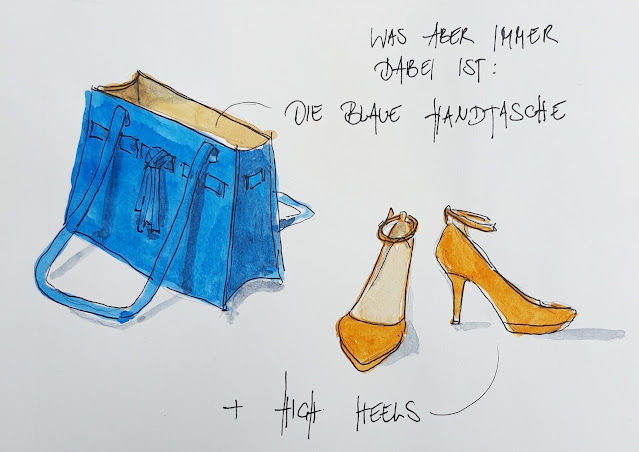 WAS ABER IMMER
DABEI IST:
DIE BLAUE HANDTASCHE
+ HIGH HEELS